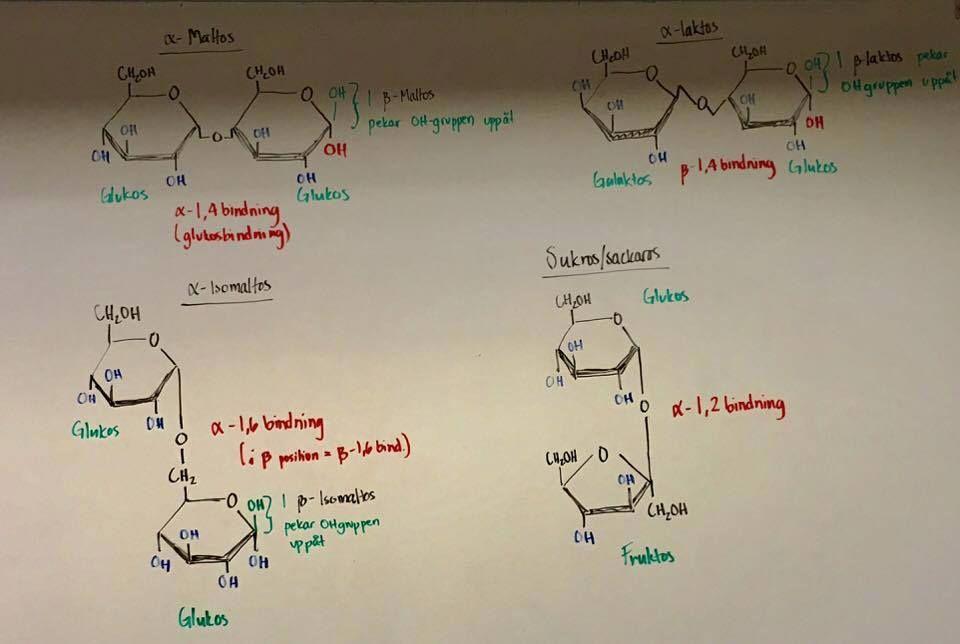 α-Maltos
CH₂OH
O
OH
OH
OH
O
CH₂OH
O
OH
OH
OH
OH
I β-Maltos
pekar OH-gruppen uppåt
Glukos
Glukos
α-1,4 bindning
(glukosbindning)
α-laktos
CH₂OH
O
OH
OH
OH
O
CH₂OH
O
OH
OH
OH
OH
I β-laktos pekar
OHgruppen uppåt
Galaktos
β-1,4 bindning
Glukos
α-Isomaltos
CH₂OH
O
OH
OH
OH
Glukos
O
α-1,6 bindning
(i β position = β-1,6 bind.)
CH₂
O
OH
OH
OH
OH
OH
I β-Isomaltos
pekar OHgruppen
uppåt
Glukos
Sukros/sackaros
CH₂OH
Glukos
O
OH
OH
OH
O
α-1,2 bindning
CH₂OH
O
OH
OH
CH₂OH
Fruktos